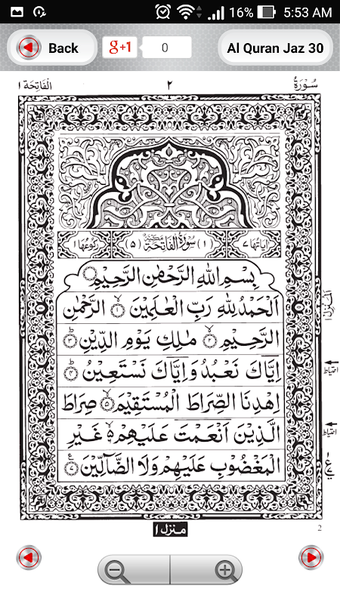 16% 5:53 AM
Back g+1 0 Al Quran Jaz 30
الفَاتِحَة ١ ٢ سُوْرَةُ
اٰيَاتُهَا ٧ (١) سُوْرَةُ الْفَاتِحَةِ (٥) رُكُوْعُهَا ١
بِسْمِ اللّٰهِ الرَّحْمٰنِ الرَّحِيْمِ
اَلْحَمْدُ لِلّٰهِ رَبِّ الْعٰلَمِيْنَ ۙ﴿١﴾ الرَّحْمٰنِ
الرَّحِيْمِ ۙ﴿٢﴾ مٰلِكِ يَوْمِ الدِّيْنِ ؕ﴿٣﴾
اِيَّاكَ نَعْبُدُ وَاِيَّاكَ نَسْتَعِيْنُ ؕ﴿٤﴾
اِهْدِنَا الصِّرَاطَ الْمُسْتَقِيْمَ ۙ﴿٥﴾ صِرَاطَ
الَّذِيْنَ اَنْعَمْتَ عَلَيْهِمْ ۙ﴿٦﴾ غَيْرِ
الْمَغْضُوْبِ عَلَيْهِمْ وَلَا الضَّآلِّيْنَ ﴿٧﴾
منزل ١
2